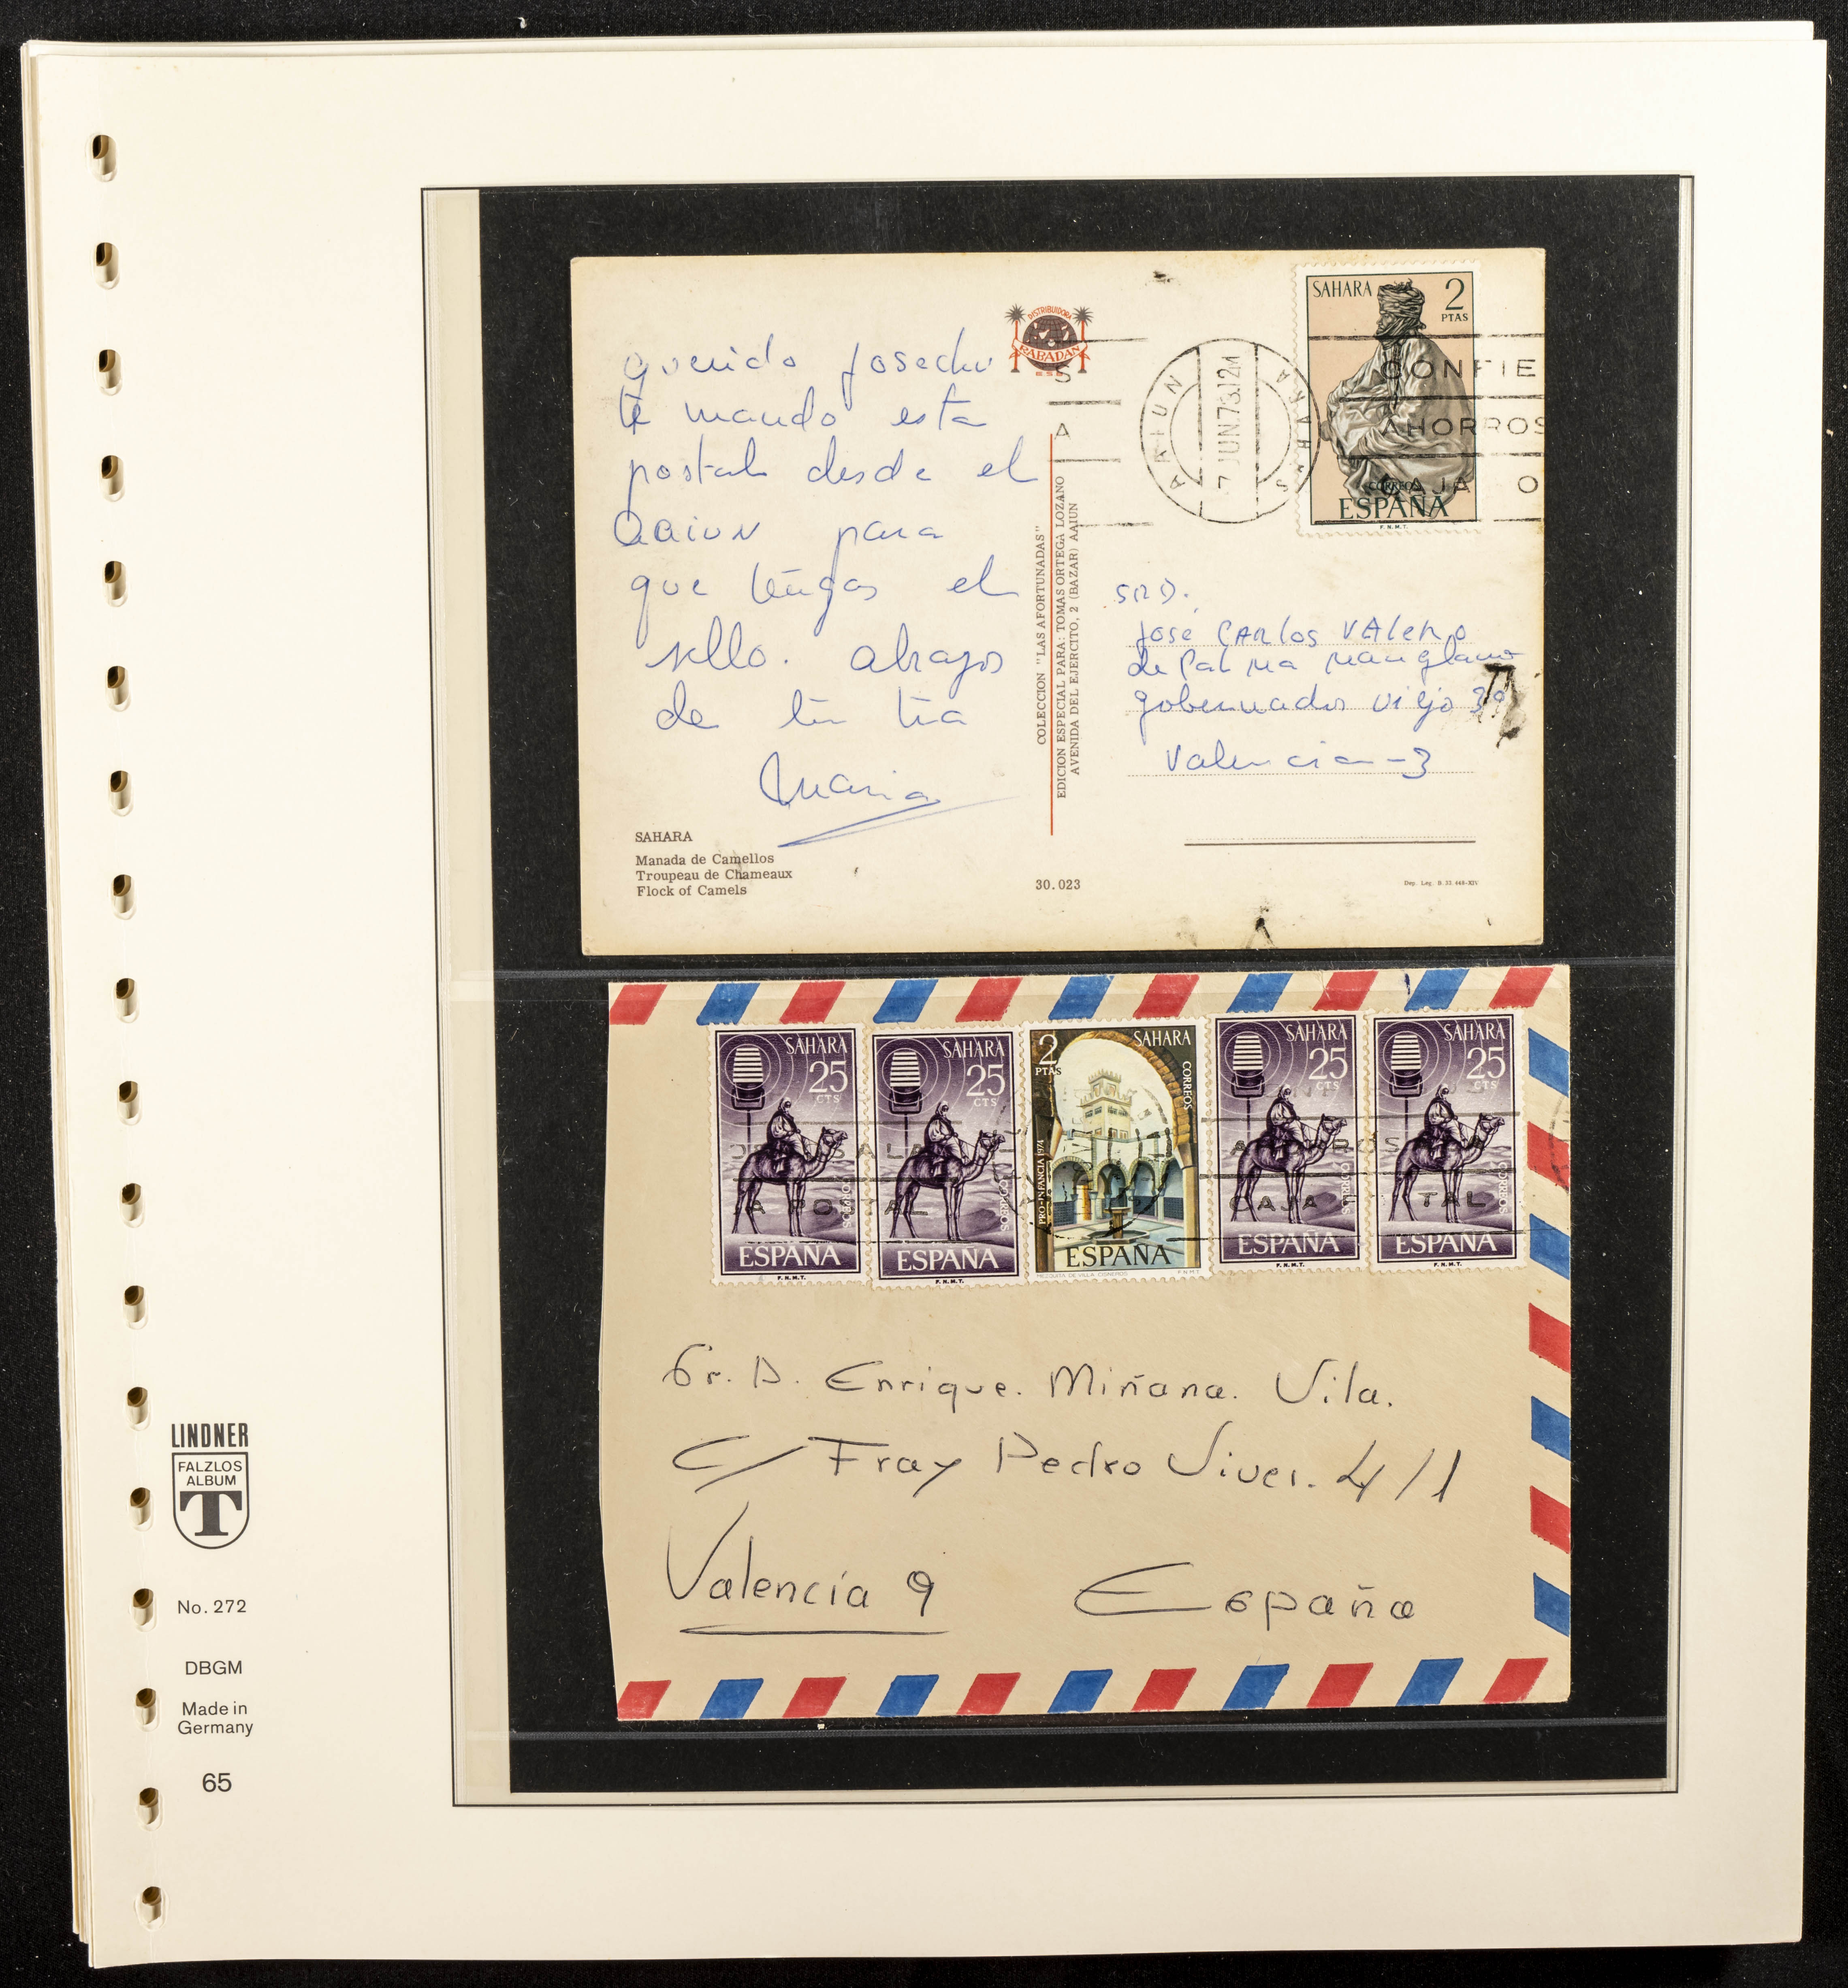 querido Josechu
te mando esta
postal desde el
Aaiun para
que tengas el
sello. abrazos
de tu tia
Maria
SAHARA
Manada de Camellos
Troupeau de Chameaux
Flock of Camels
DISTRIBUIDORA
RABADAN
S
A
COLECCION "LAS AFORTUNADAS"
EDICION ESPECIAL PARA: TOMAS ORTEGA LOZANO
AVENIDA DEL EJERCITO, 2 (BAZAR) AAIUN
30.023
AAIUN
7 JUN.73.12M
SAHARA
SAHARA 2
PTAS
CONFIE
AHORROS
CAJA O
CORREOS
ESPAÑA
F.N.M.T.
José CARlos VAlero
de Palma manglano
gobernador viejo
Valencia-3
Dep. Leg. B. 33.448-XIV
SAHARA
25
CTS
CORREOS
ESPAÑA
F.N.M.T.
SAHARA
25
CTS
CORREOS
ESPAÑA
F.N.M.T.
2
PTAS
SAHARA
CORREOS
PRO-INFANCIA 1974
ESPAÑA
MEZQUITA DE VILLA CISNEROS
F.N.M.T.
SAHARA
25
CTS
CORREOS
ESPAÑA
F.N.M.T.
SAHARA
25
CTS
CORREOS
ESPAÑA
F.N.M.T.
S A LA
A POSTAL
AHORROS A
CAJA TAL
Sr. D. Enrique. Miñana. Vila.
C/ Fray Pedro Vives. 4/1
Valencia 9 España
LINDNER
FALZLOS
ALBUM
T
No. 272
DBGM
Made in
Germany
65